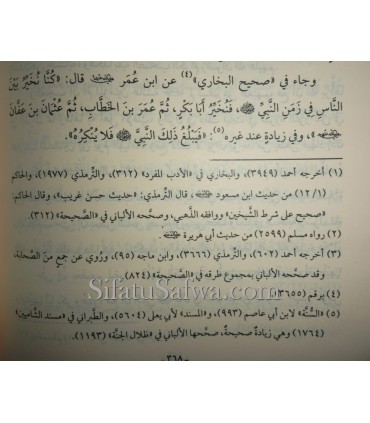 وجاء في «صحيح البخاري»(٤) عن ابن عُمَر ﵁ قال: «كُنَّا نُخَيِّرُ بَيْنَ
النَّاسِ فِي زَمَنِ النَّبِيِّ ﷺ، فَنُخَيِّرُ أَبَا بَكْرٍ، ثُمَّ عُمَرَ بنَ الخَطَّابِ، ثُمَّ عُثْمَانَ بنَ عَفَّانَ
﵃»، وفي زيادةٍ عند غيره(٥): «فَيَبْلُغُ ذَلِكَ النَّبِيَّ ﷺ فَلَا يُنْكِرُهُ».
(١) أخرجه أحمد (٣٩٤٩)، والبخاري في «الأدب المفرد» (٣١٢)، والترمذي (١٩٧٧)، والحاكم
(١/ ١٢) من حديث ابن مسعود ﵁، قال الترمذي: «حديث حسن غريب»، وقال الحاكم:
«صحيح على شرط الشيخين» ووافقه الذهبي، وصحَّحه الألباني في «الصَّحيحة» (٣١٢).
(٢) رواه مسلم (٢٥٩٩) من حديث أبي هريرة ﵁.
(٣) أخرجه أحمد (٦٠٢)، والترمذي (٣٦٦٦)، وابن ماجه (٩٥)، ورُوي عن جمعٍ من الصَّحابة،
وقد صحَّحه الألباني بمجموع طرقه في «الصَّحيحة» (٨٢٤).
SifatuSafwa.com
(٤) برقم (٣٦٥٥).
(٥) «السُّنَّة» لابن أبي عاصم (٩٩٣)، و«المسند» لأبي يعلى (٥٦٠٤)، والطَّبراني في «مسند الشَّاميين»
(١٧٦٤) وهي زيادةٌ صحيحةٌ، صحَّحها الألباني في «ظلال الجنَّة» (١١٩٣).
٣٦٨